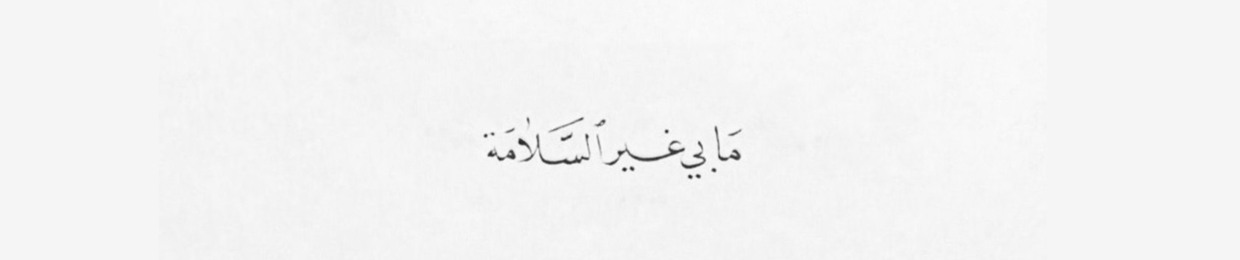 مَا بي غير ٱلسَّلَامَة